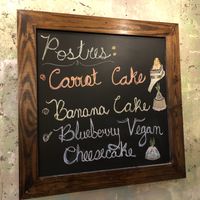 Postres:
Carrot Cake
Banana Cake
Blueberry Vegan
Cheesecake